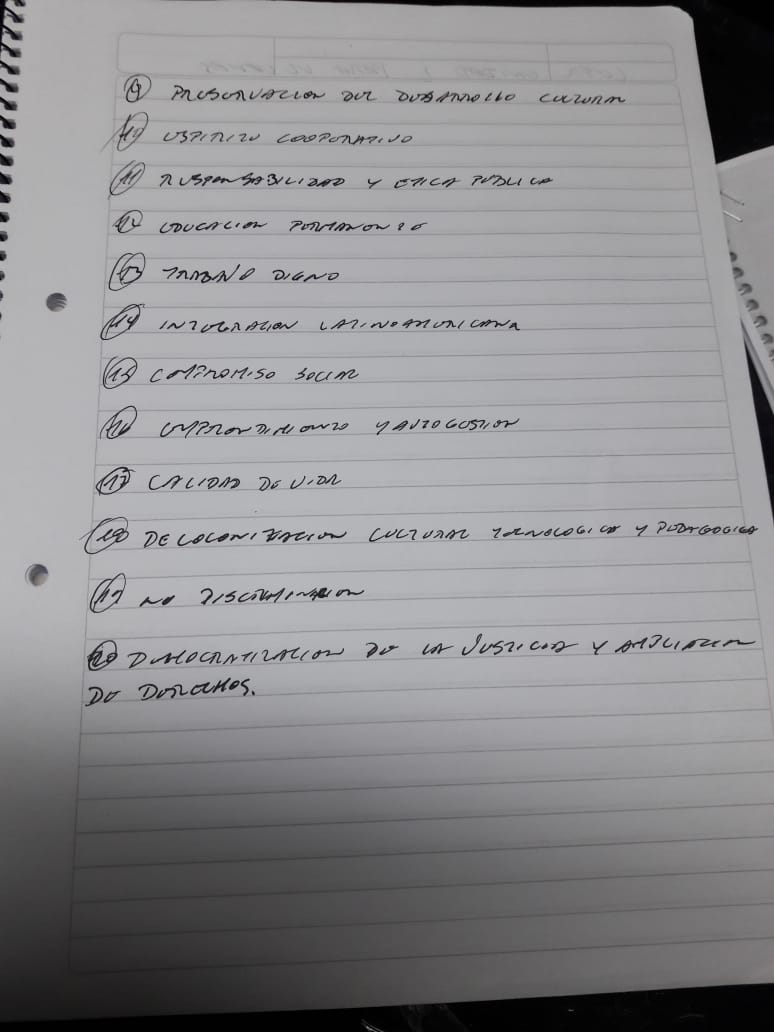 9 PRESERVACION DEL DESARROLLO CULTURAL
10 ESPIRITU COOPERATIVO
11 RESPONSABILIDAD Y ETICA PUBLICA
12 EDUCACION PERMANENTE
13 TRABAJO DIGNO
14 INTEGRACION LATINOAMERICANA
15 COMPROMISO SOCIAL
16 EMPRENDIMIENTO Y AUTOGESTION
17 CALIDAD DE VIDA
18 DECOLONIZACION CULTURAL TECNOLOGICA Y PEDAGOGICA
19 NO DISCRIMINACION
20 DEMOCRATIZACION DE LA JUSTICIA Y AMPLIACION
DE DERECHOS.